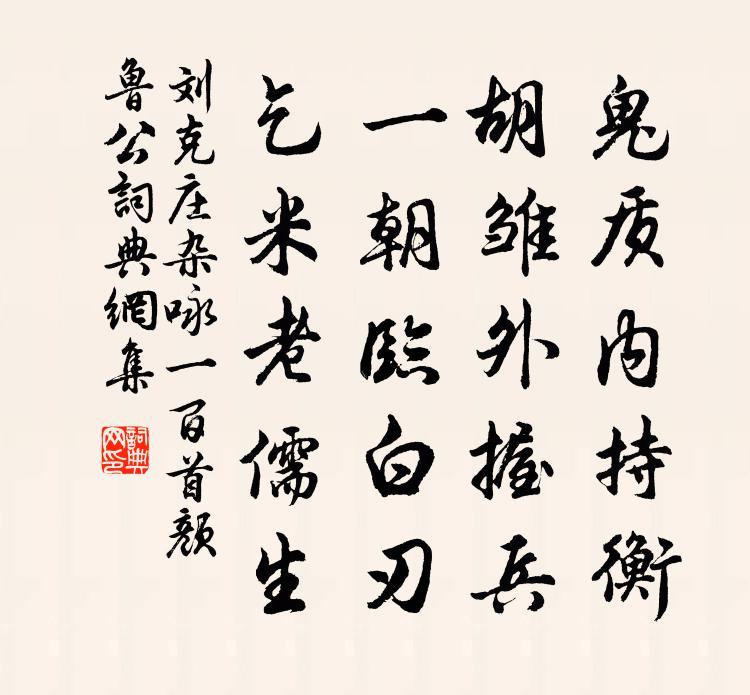 鬼质内持衡
胡雏外握兵
一朝临白刃
乞米老儒生
刘克庄杂咏一百首颜
鲁公詞典網集
詞典网印